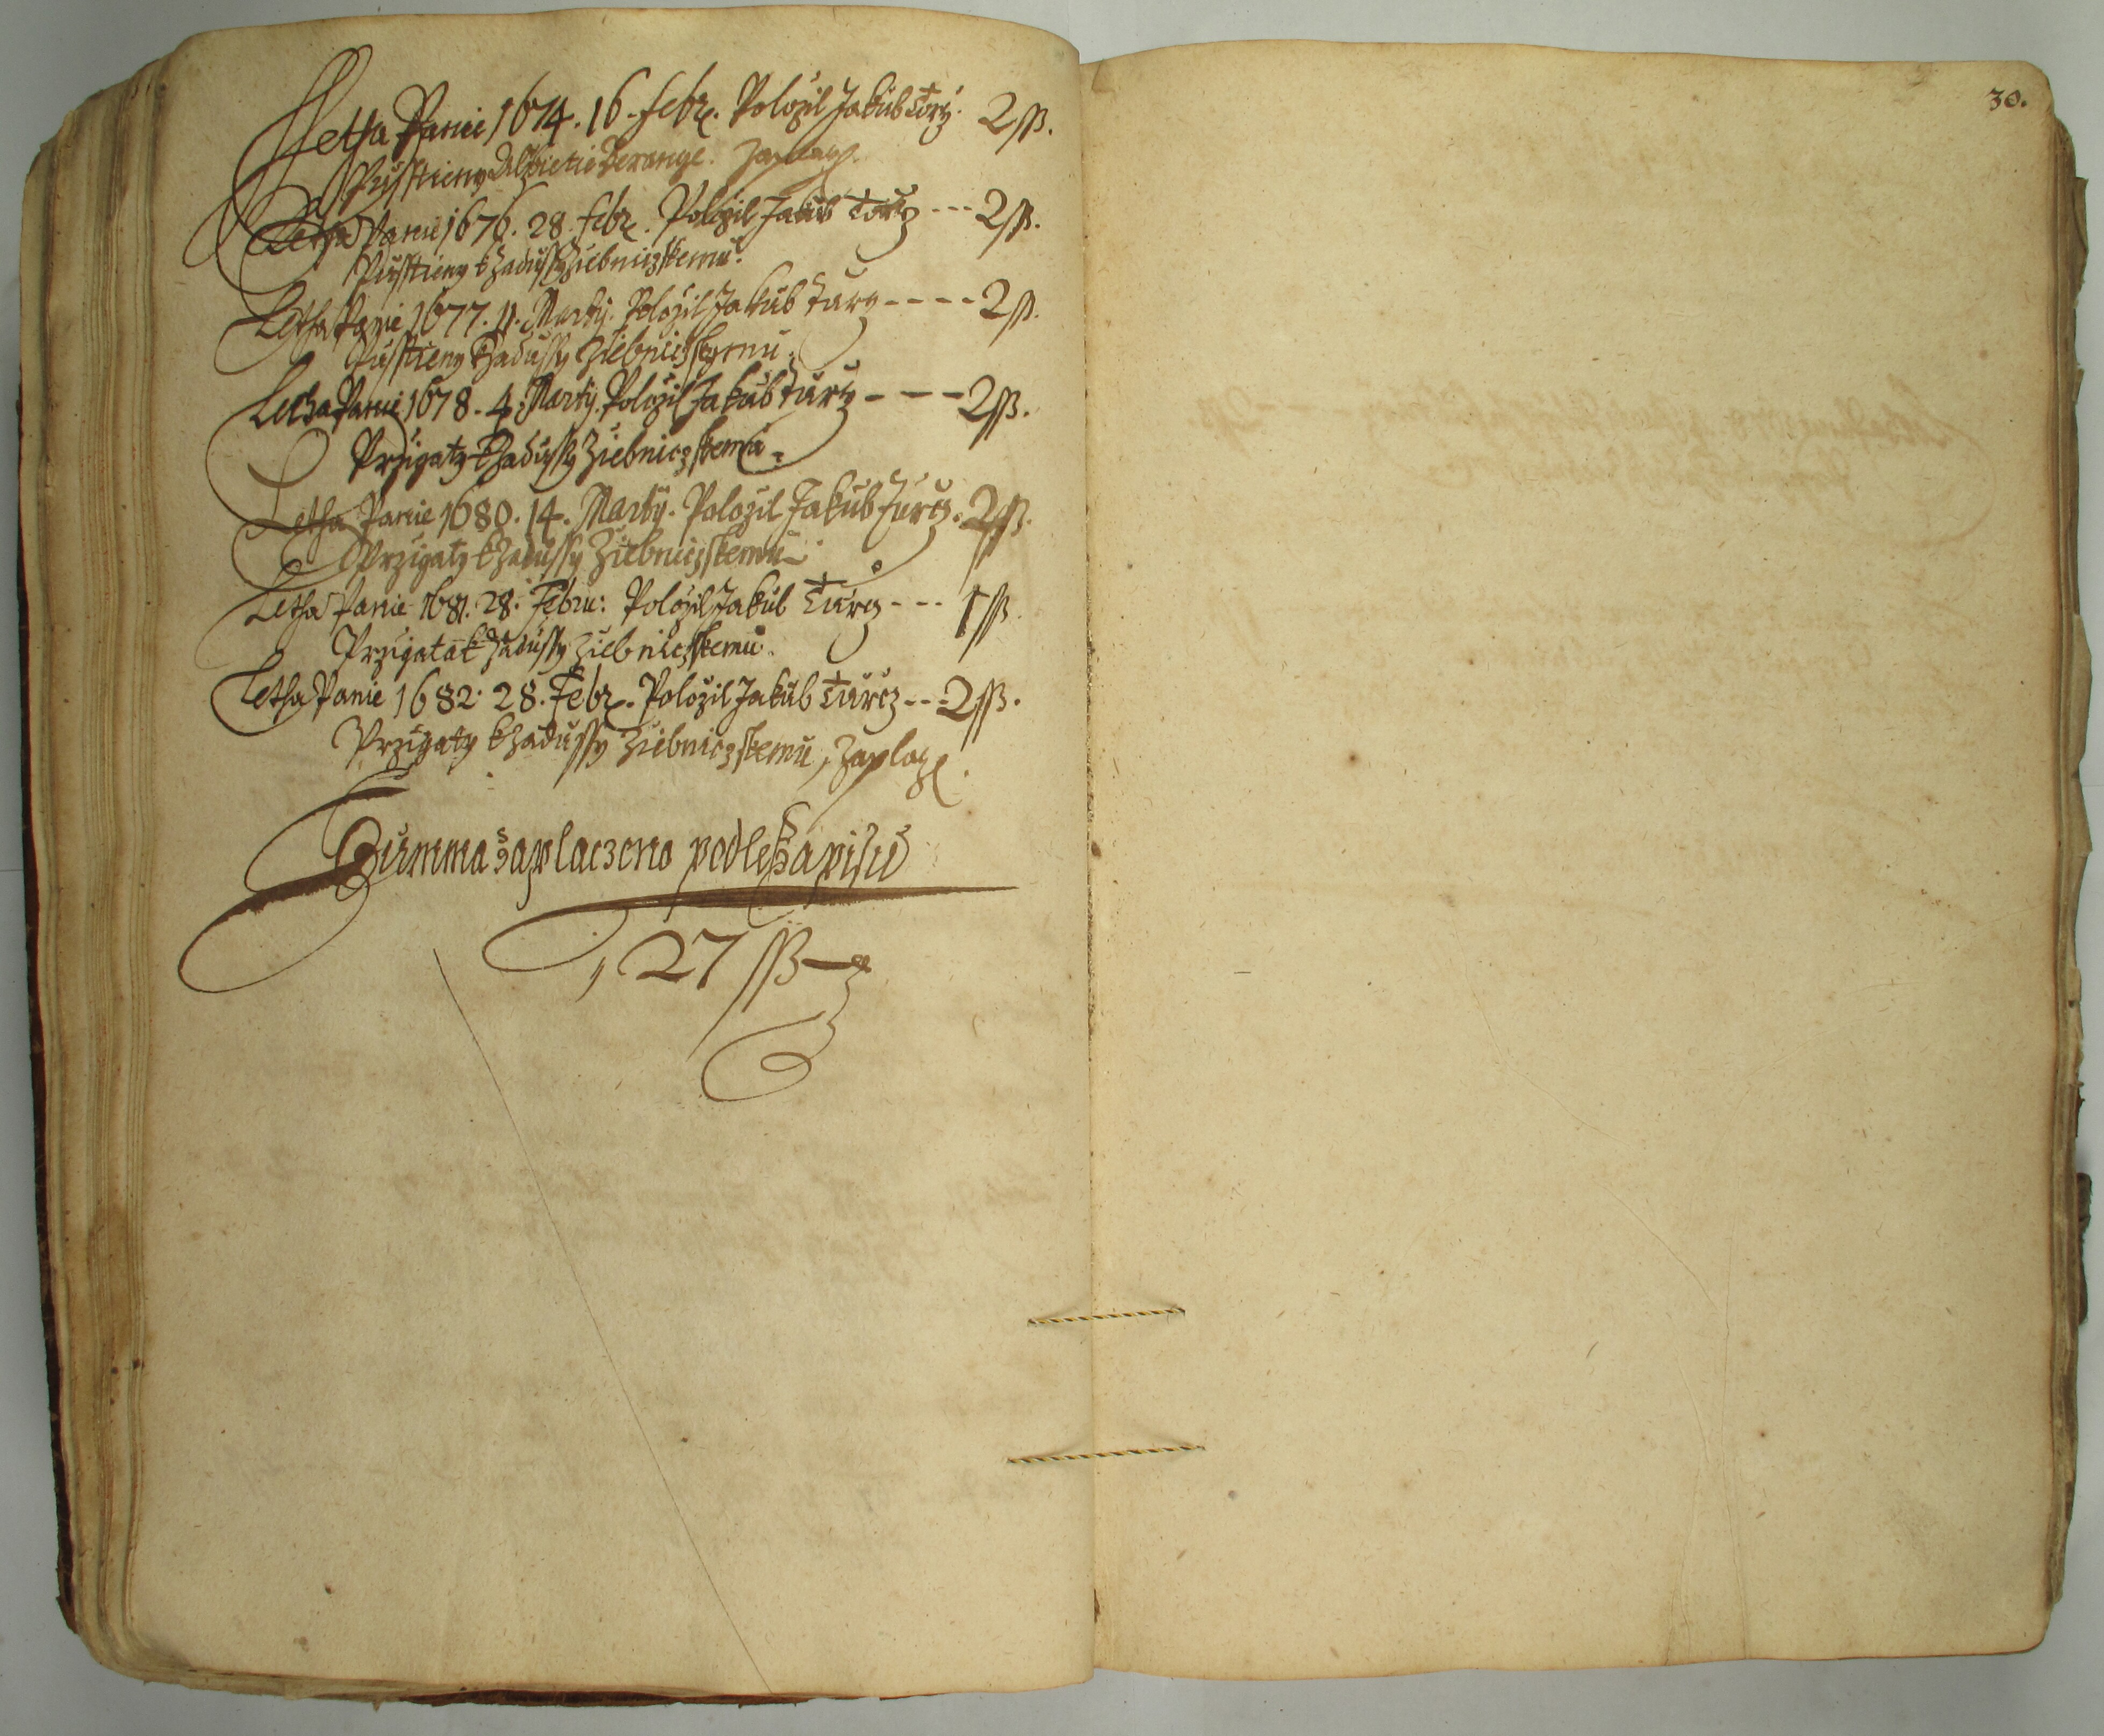 Letha Panie 1674. 16. Febr. Polozil Jakub Torcz. 2 ß.
Pusstieny Alzbietie Berange. Zaplacz.
Letha Panie 1676. 28. Febr. Polozil Jakub Torcz --- 2 ß.
Pusstieny k Zadussy Ziebniczskemu.
Letha Panie 1677. 11. Marty. Polozil Jakub Turcz ---- 2 ß.
Pusstieny k Zadussy Ziebniczskemu.
Letha Panie 1678. 4. Marty. Polozil Jakub Turcz --- 2 ß.
Przigaty k Zadussy Ziebniczskemu.
Letha Panie 1680. 14. Marty. Polozil Jakub Turcz. 2 ß.
Przigaty k Zadussy Ziebniczskemu.
Letha Panie 1681. 28. Febru: Polozil Jakub Turcz --- 1 ß
Przigata k Zadussy Ziebniczskemu.
Letha Panie 1682. 28. Febr. Polozil Jakub Turcz --- 2 ß.
Przigaty k Zadussy Ziebniczskemu, Zaplacz.
Summa zaplaczeno podle Zapisu
27 ß
30.